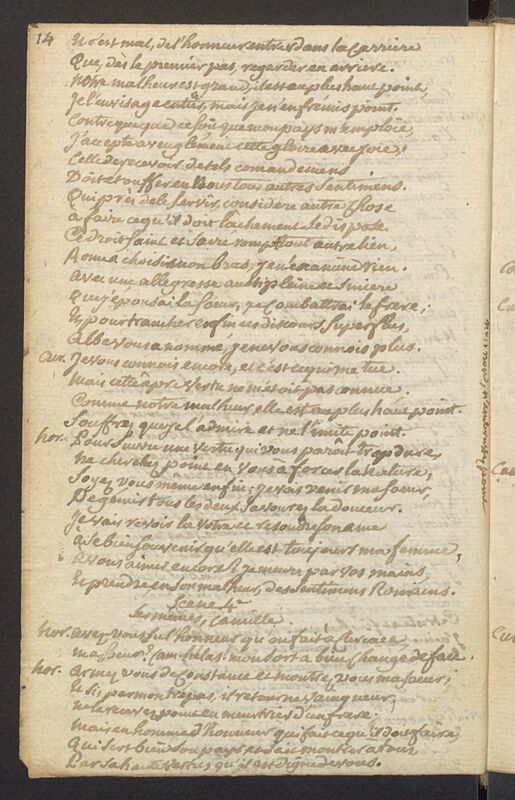 14 Et c'est mal, de l'honneur entrer dans la Carriere
Que, dès le premier pas, regarder en arriere.
Notre malheur est grand, il est au plus haut point,
Je l'envisage entier, mais je n'en fremis point.
Contre que que ce soit que mon pays m'emploie,
J'accepte aveuglement cette gloire avec joie;
Celle de recevoir de tels comandemens
Doit etouffer en nous tous autres sentimens.
Qui près de le servir, considere autre chose
à faire ce qu'il doit lachement se dispose
Ce droit saint et sacré rompt tout autre lien,
Rome a choisi mon bras, je n'examine rien.
Avec une allegresse aussi pleine et sincere
Que j'épousai la soeur, je combattrai le frere;
Et pour trancher enfin ces discours superflus,
Albe vous a nommé, je ne vous connois plus.
Cur. Je vous connois encore, et c'est ce qui me tue.
Mais cette âpre vertu ne m'étoit pas connue
Comme notre malheur, elle est au plus haut point.
Souffrez que je l'admire et ne l'imite point.
hor. Pour suivre une vertu qui vous paroît trop dure,
Ne cherchez point en vous à forcer la nature;
Soyez vous meme enfin; je vais venir ma soeur,
De gemir tous les deux savourez la douceur.
Je vais revoir la votre et resoudre son ame
à se bien souvenir qu'elle est toujours ma femme,
à vous aimer encore si je meurs par vos mains,
Et prendre en son malheur, des sentimens Romains.
Scene 4e
Les mêmes, Camille
hor. avez-vous su l'honneur qu'on fait à Curiace
ma soeur? Cam. helas! mon sort a bien changé de face.
hor. Armez vous de constance et montrez vous ma soeur;
Et si par mon trepas, il retourne vainqueur,
ne le recevez point en meurtrier d'un frere:
mais en homme d'honneur qui fait ce qu'il doit faire,
Qui sert bien son pays et sait montrer à tous,
Par sa haute vertu, qu'il est digne de vous.